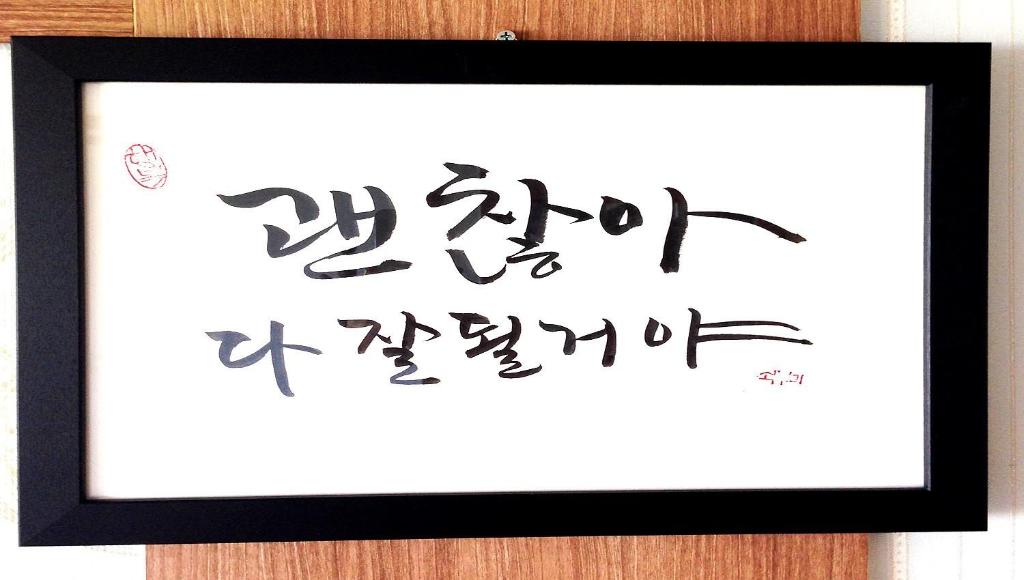 괜찮아
다 잘 될 거야